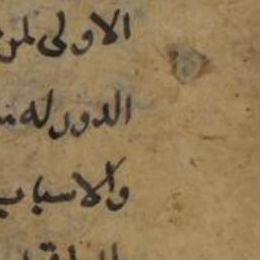 الاولى لمن
الدور له
والاسباب